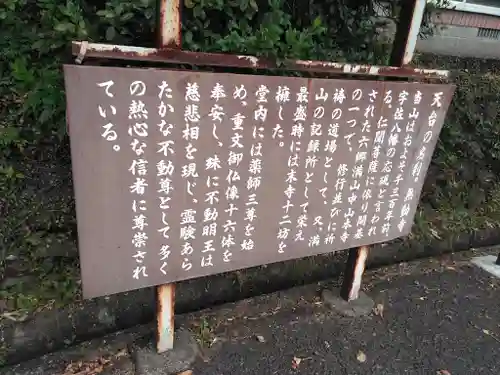 天台の名刹・無動寺
当山はおよそ千三百年前
宇佐八幡の応現と言われ
る、仁聞菩薩に依り開基
された六郷満山中山本寺
の一つで、修行並びに祈
祷の道場として、又、満
山の記録所として栄え
最盛時には末寺十二坊を
擁した。
堂内には薬師三尊を始
め、重文御仏像十六体を
奉安し、殊に不動明王は
慈悲相を現じ、霊験あら
たかな不動尊として多く
の熱心な信者に尊崇され
ている。